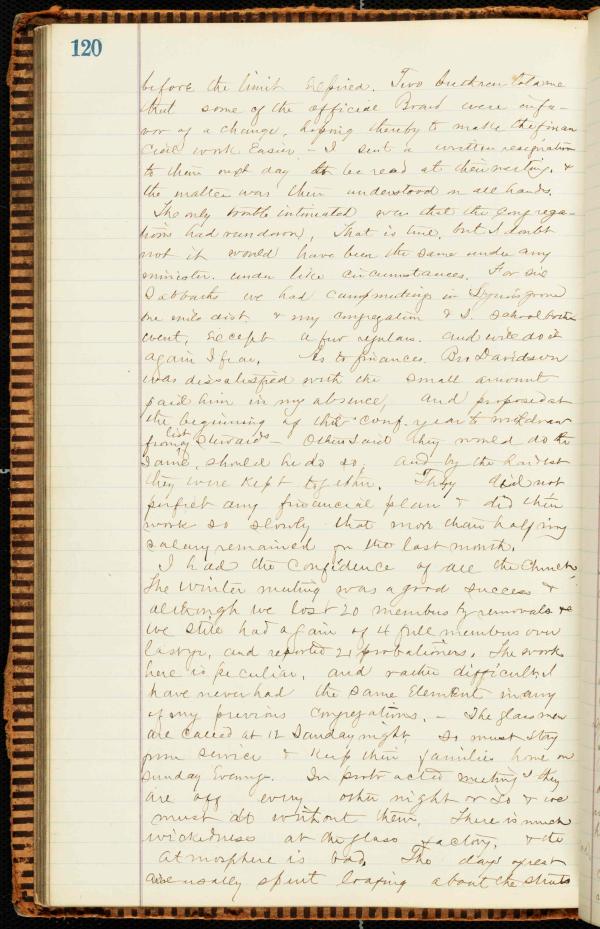 120
before the limit expired. Two brethren told me
that some of the official Board were in fa-
vor of a change, hoping thereby to make the finan
cial work easier - I sent a written resignation
to them next day to be read at their meeting. &
the matter was then understood on all hands.
The only trouble intimated was that the congrega-
tions had run down. That is true, but I doubt
not it would have been the same under any
minister under like circumstances. For six
Sabbaths we had campmeetings in grove
one mile dist. & my congregation & S. School both
went, except a few regulars. and will do it
again I fear. As to finances Bro Davidson
was dissatisfied with the small amount
paid him in my absence, and proposed at
the beginning of this conf. year to withdraw
from list of Stewards - Others said they would do the
same, should he do so, and by the hardest
they were kept together. They did not
perfect any financial plan & did their
work so slowly that more than half my
salary remained for the last month.
I had the confidence of all the Church.
The winter meeting was a good success &
although we lost 20 members by removals &c
we still had a gain of 4 full members over
last yr, and reported 21 probationers. The work
here is peculiar, and rather difficult. I
have never had the same element in any
of my previous congregations. - The glass men
are called at 12 Sunday night, so must stay
from service & keep their families home on
Sunday Evening. In protracted meetings they
are off every other night or so & we
must do without them. There is much
wickedness at the glass factory, & the
atmosphere is bad. The days of rest
are usually spent loafing about the streets